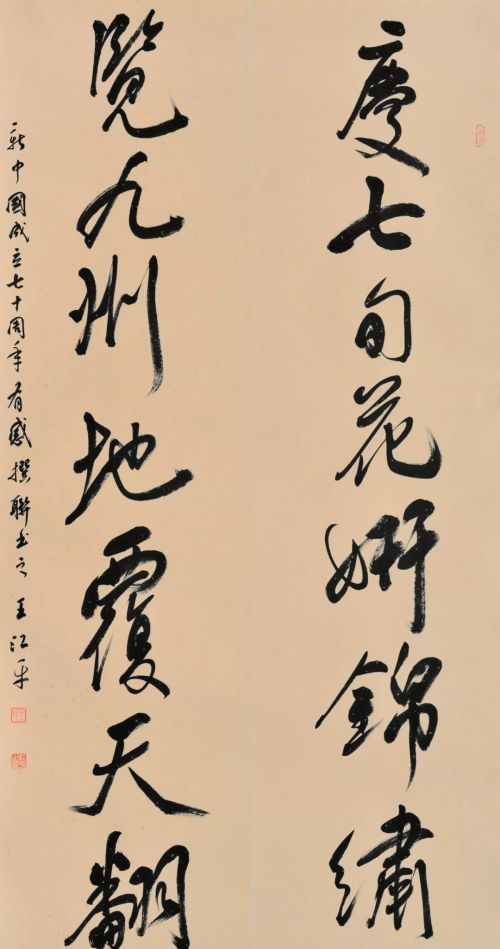 慶七旬花妍錦繡
覽九州地覆天翻
新中國成立七十周年有感撰聯書之 王江平